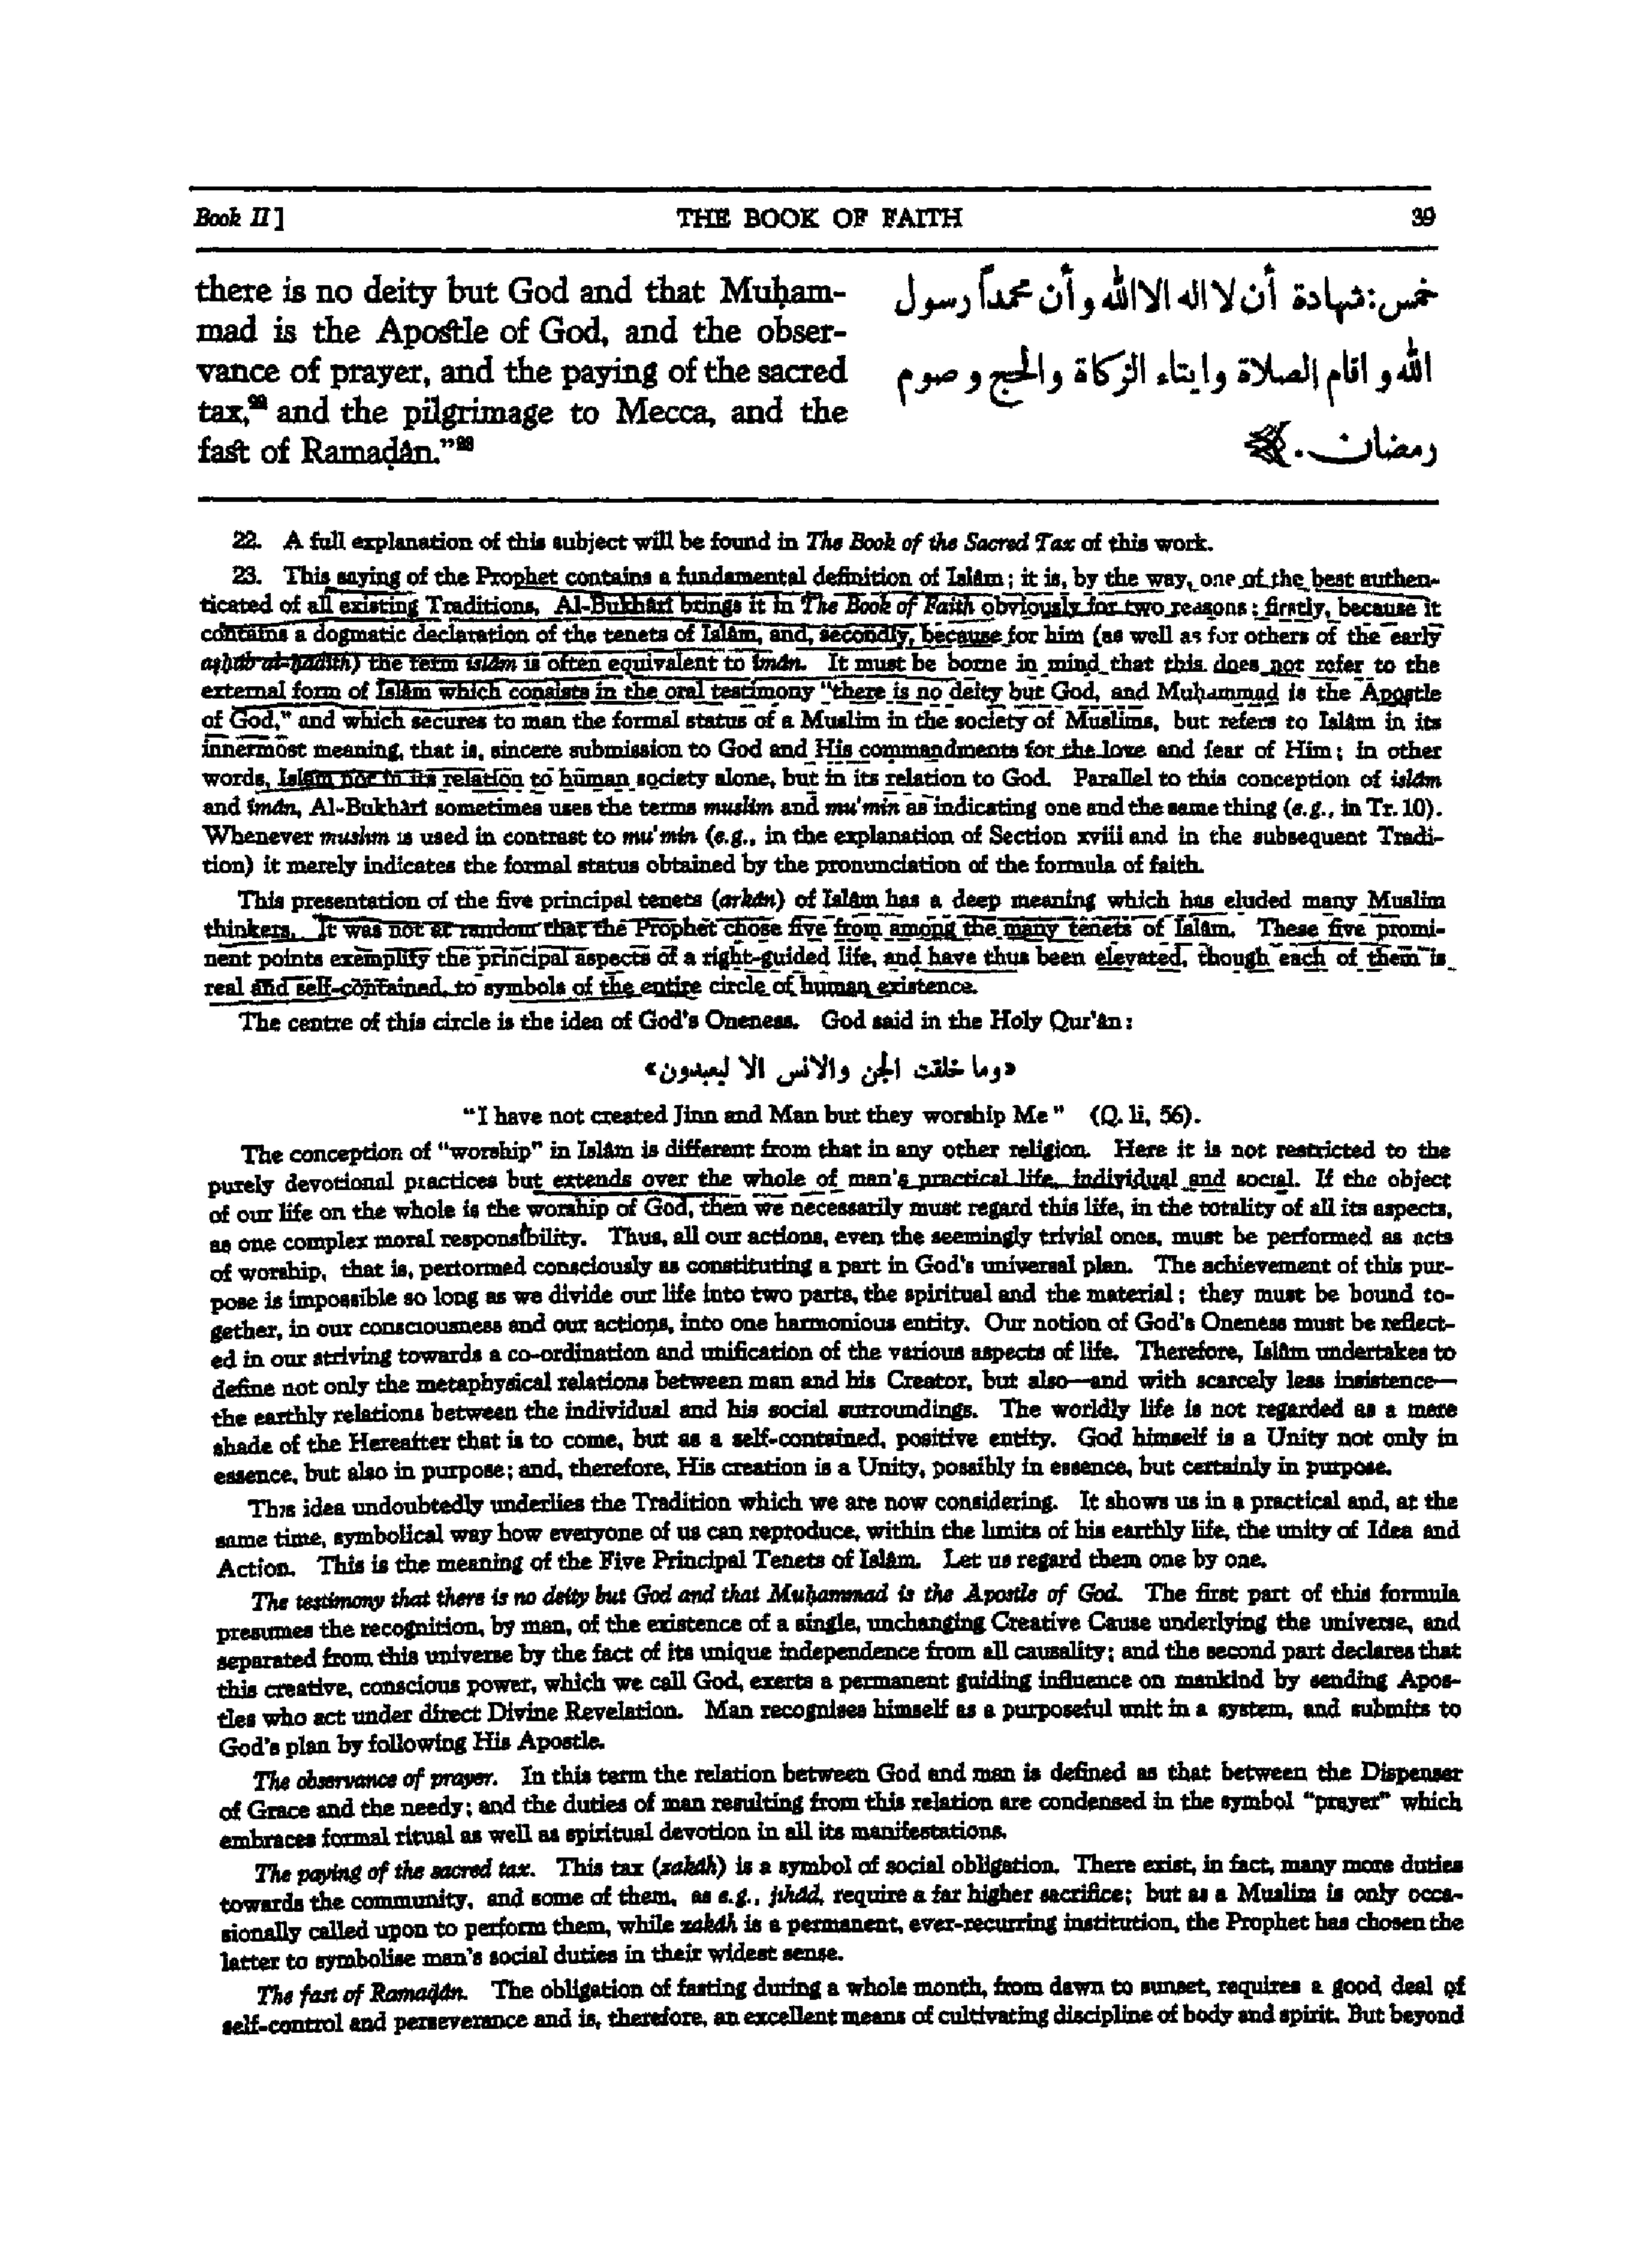 Book II]
THE BOOK OF FAITH
39
there is no deity but God and that Muḥam-
mad is the Apostle of God, and the obser-
vance of prayer, and the paying of the sacred
tax,²² and the pilgrimage to Mecca, and the
fast of Ramaḍân.”²³
خمس: شهادة أن لا اله الا الله وأن محمداً رسول
الله و اقام الصلاة وايتاء الزكاة والحج و صوم
رمضان.
22. A full explanation of this subject will be found in The Book of the Sacred Tax of this work.
23. This saying of the Prophet contains a fundamental definition of Islâm; it is, by the way, one of the best authen-
ticated of all existing Traditions. Al-Bukhârî brings it in The Book of Faith obviously for two reasons: firstly, because it
contains a dogmatic declaration of the tenets of Islâm, and, secondly, because for him (as well as for others of the early
aṣḥâb al-ḥadîth) the term islâm is often equivalent to îmân. It must be borne in mind that this does not refer to the
external form of Islâm which consists in the oral testimony “there is no deity but God, and Muḥammad is the Apostle
of God,” and which secures to man the formal status of a Muslim in the society of Muslims, but refers to Islâm in its
innermost meaning, that is, sincere submission to God and His commandments for the love and fear of Him; in other
words, Islâm not in its relation to human society alone, but in its relation to God. Parallel to this conception of islâm
and îmân, Al-Bukhârî sometimes uses the terms muslim and mu'min as indicating one and the same thing (e.g., in Tr. 10).
Whenever muslim is used in contrast to mu'min (e.g., in the explanation of Section xviii and in the subsequent Tradi-
tion) it merely indicates the formal status obtained by the pronunciation of the formula of faith.
This presentation of the five principal tenets (arkân) of Islâm has a deep meaning which has eluded many Muslim
thinkers. It was not at random that the Prophet chose five from among the many tenets of Islâm. These five promi-
nent points exemplify the principal aspects of a right-guided life, and have thus been elevated, though each of them is
real and self-contained, to symbols of the entire circle of human existence.
The centre of this circle is the idea of God's Oneness. God said in the Holy Qur'ân:
«وما خلقت الجن والانس الا ليعبدون»
“I have not created Jinn and Man but they worship Me” (Q. li, 56).
The conception of “worship” in Islâm is different from that in any other religion. Here it is not restricted to the
purely devotional practices but extends over the whole of man's practical life, individual and social. If the object
of our life on the whole is the worship of God, then we necessarily must regard this life, in the totality of all its aspects,
as one complex moral responsibility. Thus, all our actions, even the seemingly trivial ones, must be performed as acts
of worship, that is, performed consciously as constituting a part in God's universal plan. The achievement of this pur-
pose is impossible so long as we divide our life into two parts, the spiritual and the material: they must be bound to-
gether, in our consciousness and our actions, into one harmonious entity. Our notion of God's Oneness must be reflect-
ed in our striving towards a co-ordination and unification of the various aspects of life. Therefore, Islâm undertakes to
define not only the metaphysical relations between man and his Creator, but also—and with scarcely less insistence—
the earthly relations between the individual and his social surroundings. The worldly life is not regarded as a mere
shade of the Hereafter that is to come, but as a self-contained, positive entity. God himself is a Unity not only in
essence, but also in purpose; and, therefore, His creation is a Unity, possibly in essence, but certainly in purpose.
This idea undoubtedly underlies the Tradition which we are now considering. It shows us in a practical and, at the
same time, symbolical way how everyone of us can reproduce, within the limits of his earthly life, the unity of Idea and
Action. This is the meaning of the Five Principal Tenets of Islâm. Let us regard them one by one.
The testimony that there is no deity but God and that Muḥammad is the Apostle of God. The first part of this formula
presumes the recognition, by man, of the existence of a single, unchanging Creative Cause underlying the universe, and
separated from this universe by the fact of its unique independence from all causality; and the second part declares that
this creative, conscious power, which we call God, exerts a permanent guiding influence on mankind by sending Apos-
tles who act under direct Divine Revelation. Man recognises himself as a purposeful unit in a system, and submits to
God's plan by following His Apostle.
The observance of prayer. In this term the relation between God and man is defined as that between the Dispenser
of Grace and the needy; and the duties of man resulting from this relation are condensed in the symbol “prayer” which
embraces formal ritual as well as spiritual devotion in all its manifestations.
The paying of the sacred tax. This tax (zakâh) is a symbol of social obligation. There exist, in fact, many more duties
towards the community, and some of them, as e.g., jihâd, require a far higher sacrifice; but as a Muslim is only occa-
sionally called upon to perform them, while zakâh is a permanent, ever-recurring institution, the Prophet has chosen the
latter to symbolise man's social duties in their widest sense.
The fast of Ramaḍân. The obligation of fasting during a whole month, from dawn to sunset, requires a good deal of
self-control and perseverance and is, therefore, an excellent means of cultivating discipline of body and spirit. But beyond